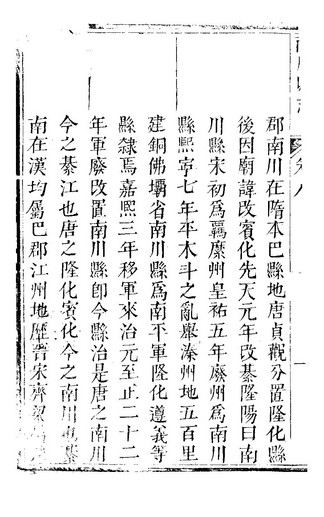 郡南川在隋本巴縣地唐貞觀分置隆化縣
後因廟諱改賓化先天元年改綦隆陽曰南
川縣宋初爲羈縻州皇祐五年廢州爲南川
縣熙寧七年平木斗之亂舉溱州地五百里
建銅佛壩省南川縣爲南平軍隆化遵義等
縣隸焉嘉熙三年移軍來治元至止二十二
年軍廢改置南川縣卽今縣治是唐之南川
今之綦江也唐之隆化賓化今之南川也綦
南在漢均屬巴郡江州地歷晉宋齊梁
卷八
一